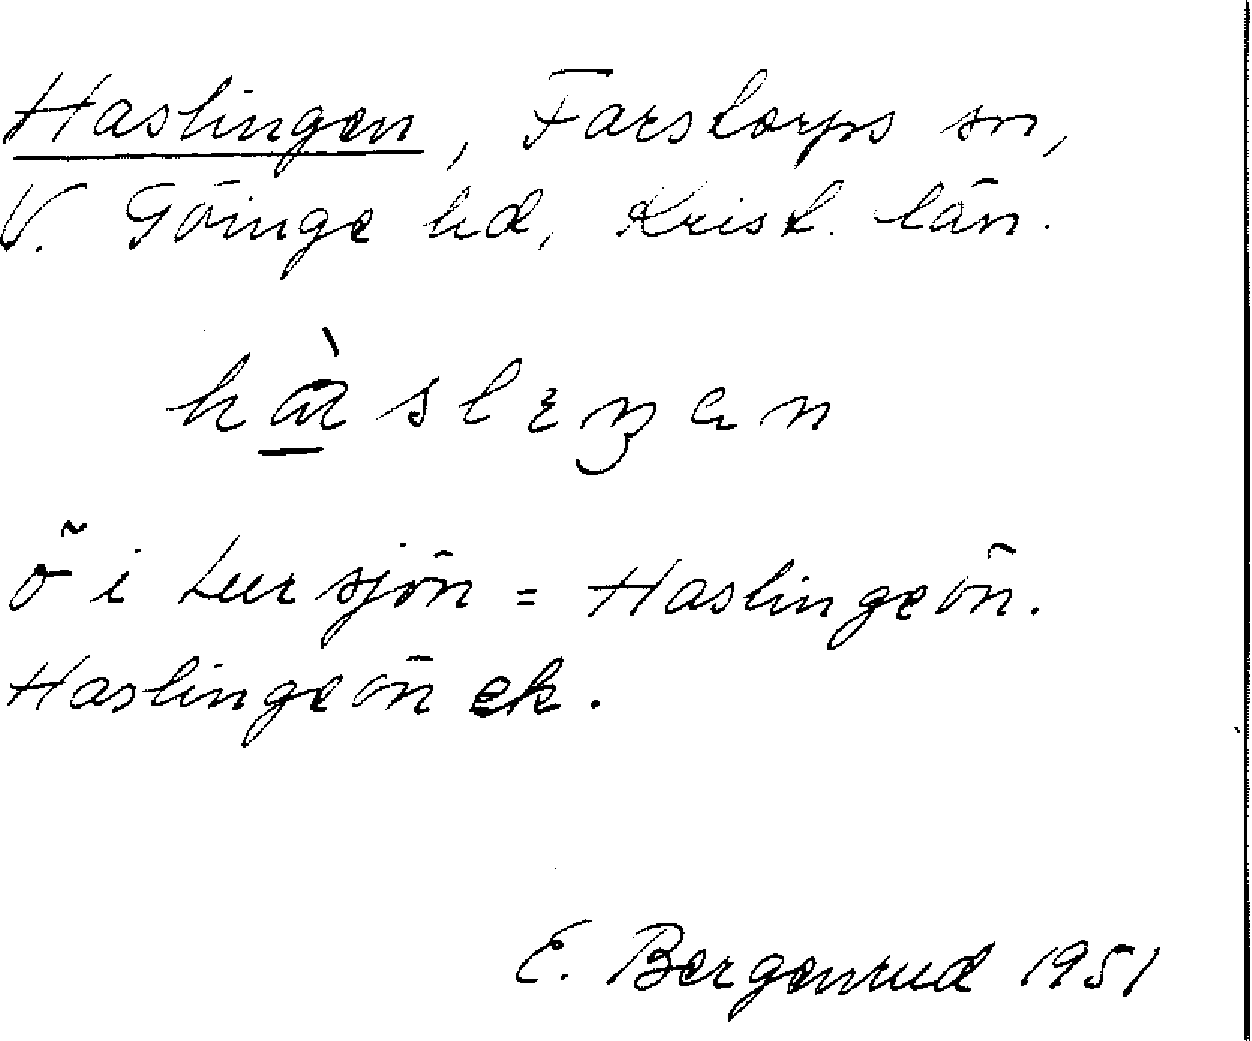 Haslingen, Farstorps sn,
V. Göinge hd, Krist. län.
ö i Luersjön = Haslingeön.
Haslingeön ek.
E. Bergenrud 1951